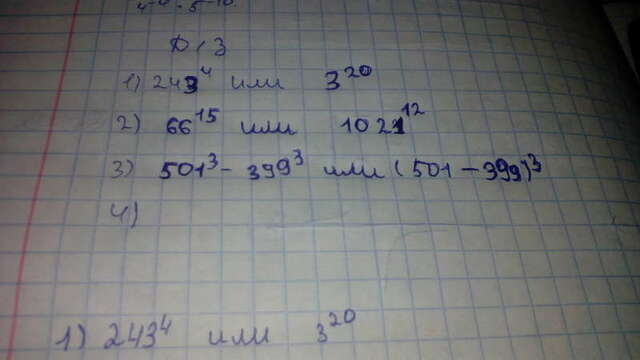 Д/З
1) 243⁴ или 3²⁰
2) 66¹⁵ или 1021¹²
3) 501³ - 399³ или (501 - 399)³
4)
1) 243⁴ или 3²⁰